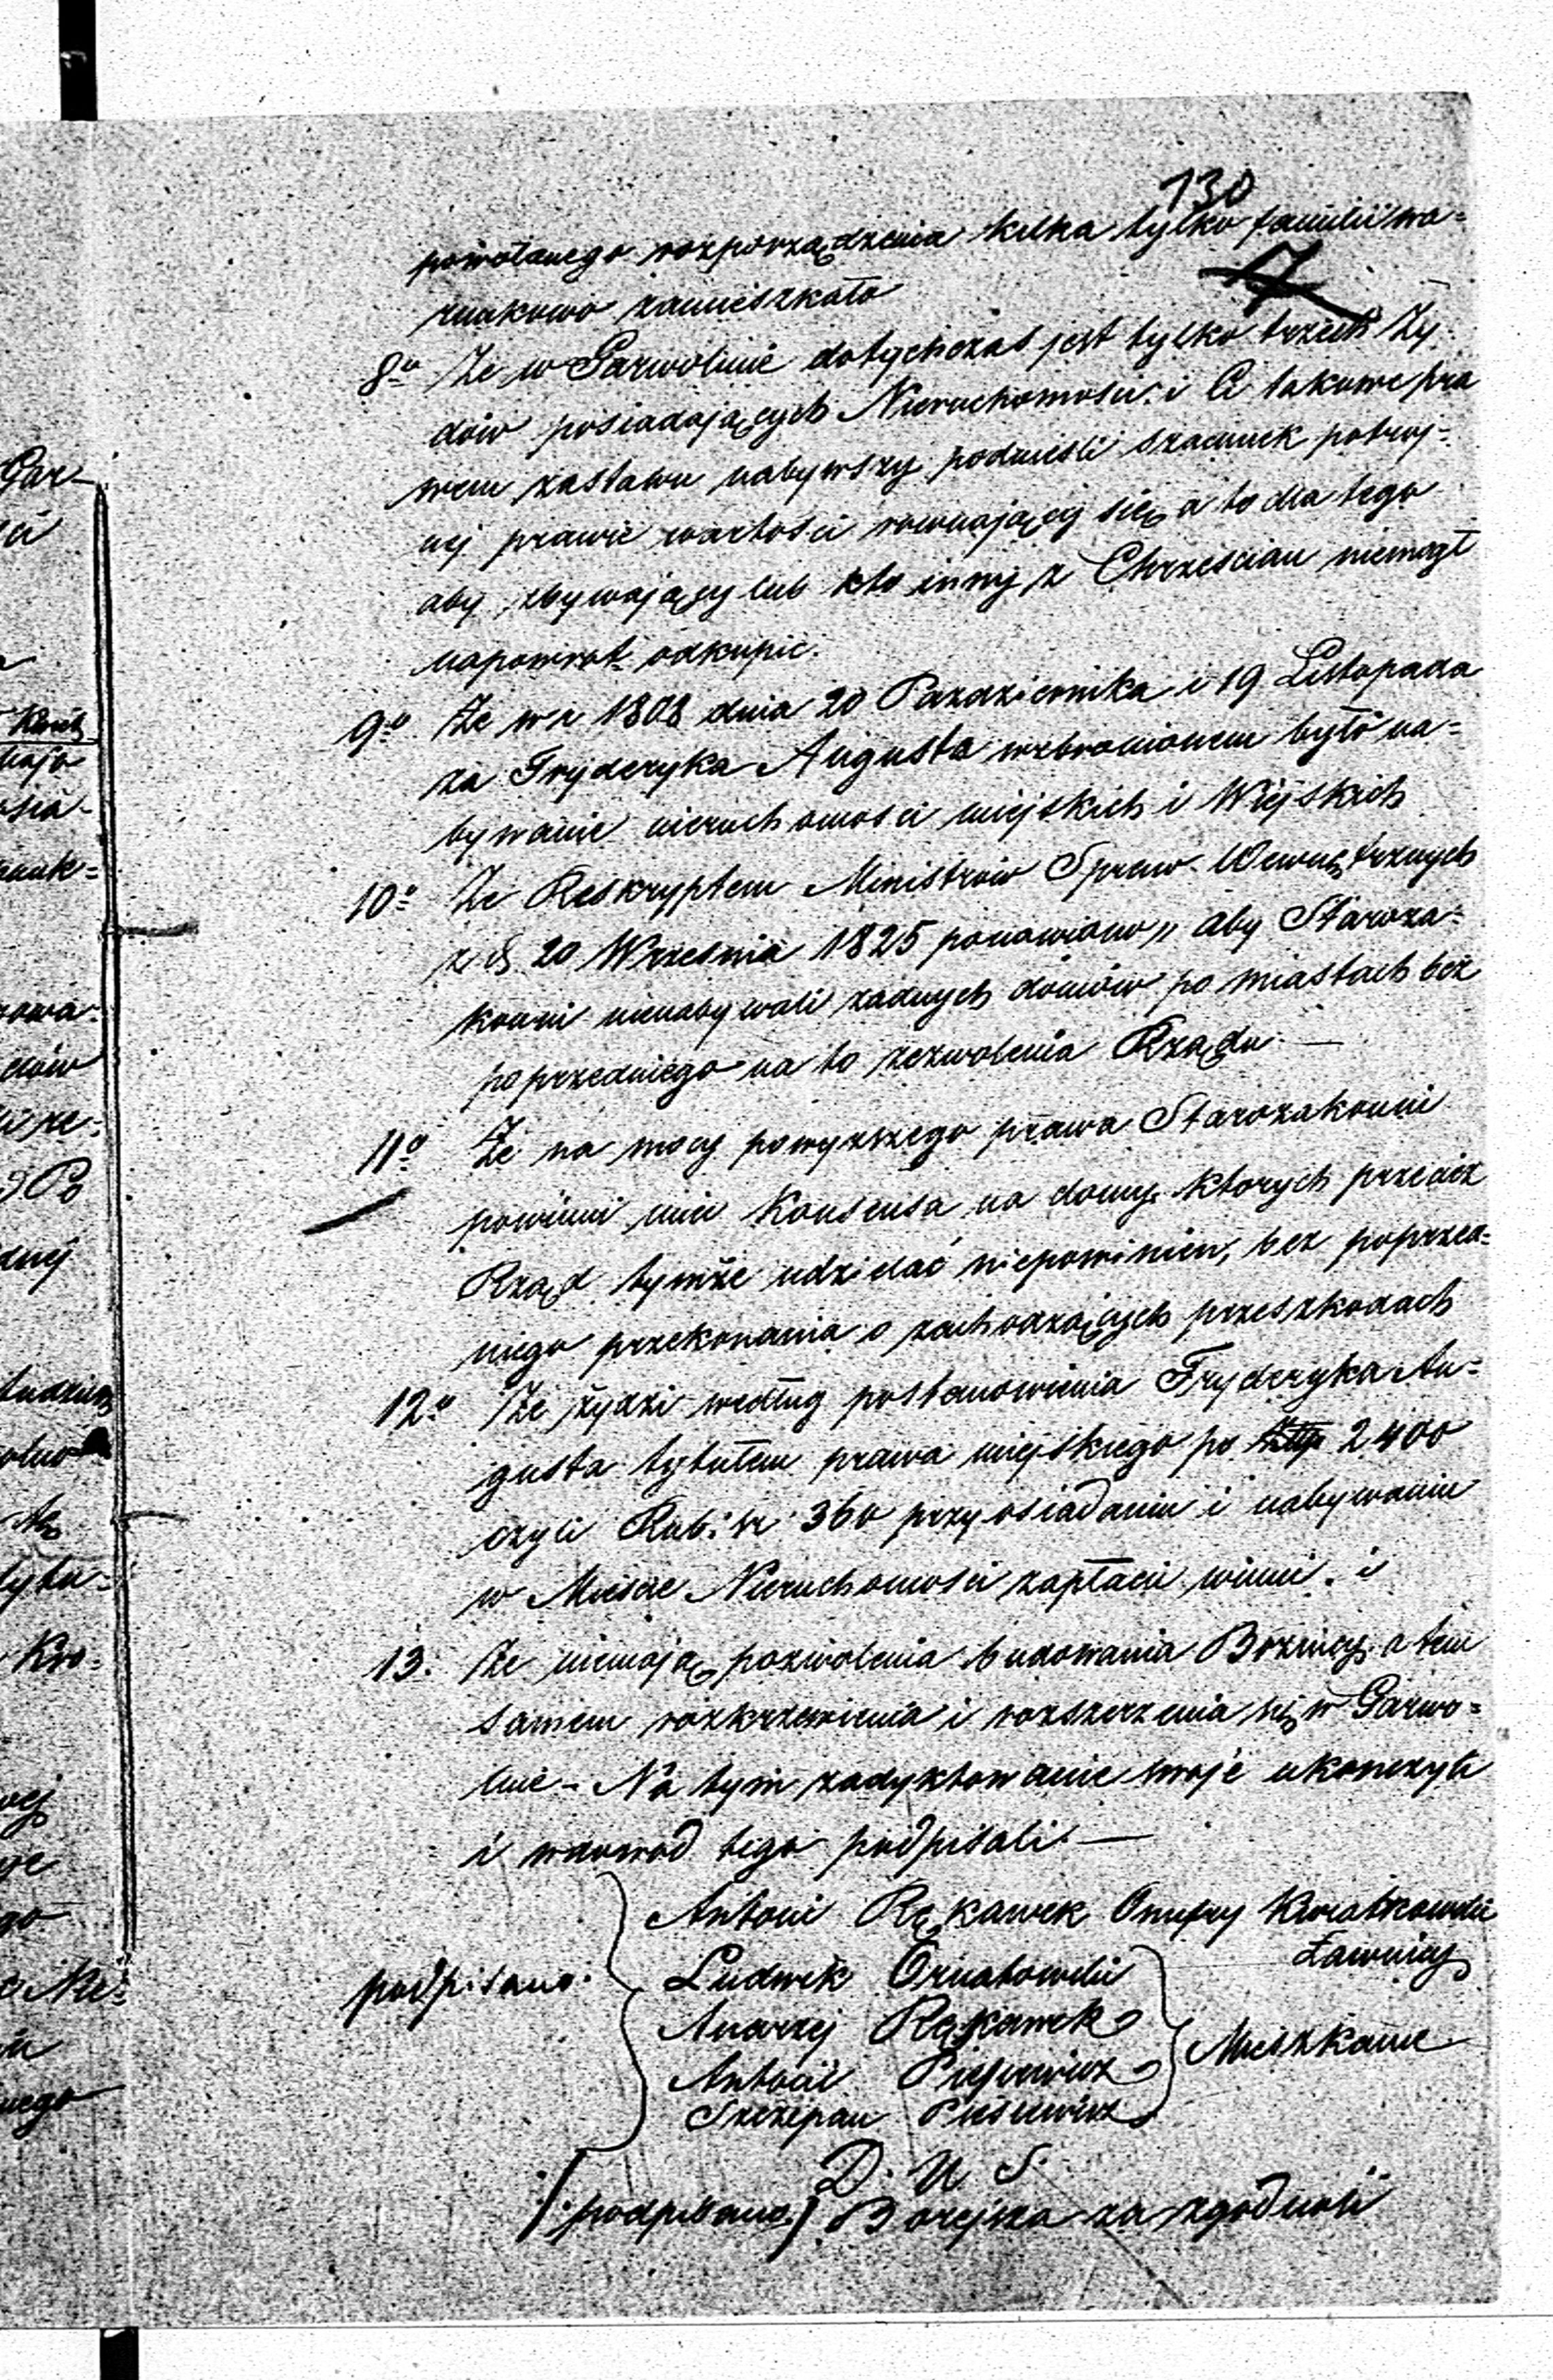 130
powołanego rozporządzenia kilka tylko familii wa-
runkowo zamieszkało
7
8º Że w Garwolinie dotychczas jest tylko trzech Ży-
dów posiadających Nieruchomości i Ci takowe pra
wem zastawu nabywszy podnieśli szacunek potrój-
nej prawie wartości rownającej się, a to dla tego
aby zbywający lub kto inny z Chrześcian niemógł
napowrot odkupić.
9º Że w r 1808 dnia 20 Pazdziernika i 19 Listopada
za Fryderyka Augusta wzbronionem było na-
bywanie nieruchomości miejskich i Wiejskich
10º Że Reskryptem Ministrów Spraw Wewnętrznych
z d 20 Września 1825 ponowiono „ aby Staroza-
konni nienabywali żadnych domów po miastach bez
poprzedniego na to zezwolenia Rządu. —
11º Że na mocy powyższego prawa Starozakonni
powinni mieć Konsensa na domy, ktorych przecież
Rząd tymże udzielać niepowinien, bez poprzed-
niego przekonania o zachodzących przeszkodach
12º Że żydzi według postanowienia Fryderyka Au-
gusta tytułem prawa miejskiego po Złtp 2400
czyli Rub: sr 360 przy osiadaniu i nabywaniu
w Mieście Nieruchomości zapłacić winni. i
13. Że niemają pozwolenia budowania Bożnicy, a tem
samem rozkrzewienia i rozszerzenia się w Garwo-
linie – Na tym zadyktowanie swoje ukonczyli
i wdowod tego podpisali. —
Antoni Rękawek Onufry Kwiatkowski
Ławnicy
podpisano: Ludwik Ornatowski
Andrzej Rękawek
Antoni Piesiewicz
Mieszkanie
Szczepan Piesiewicz
D. U S.
/:podpisano:/ Borejsza za zgodność